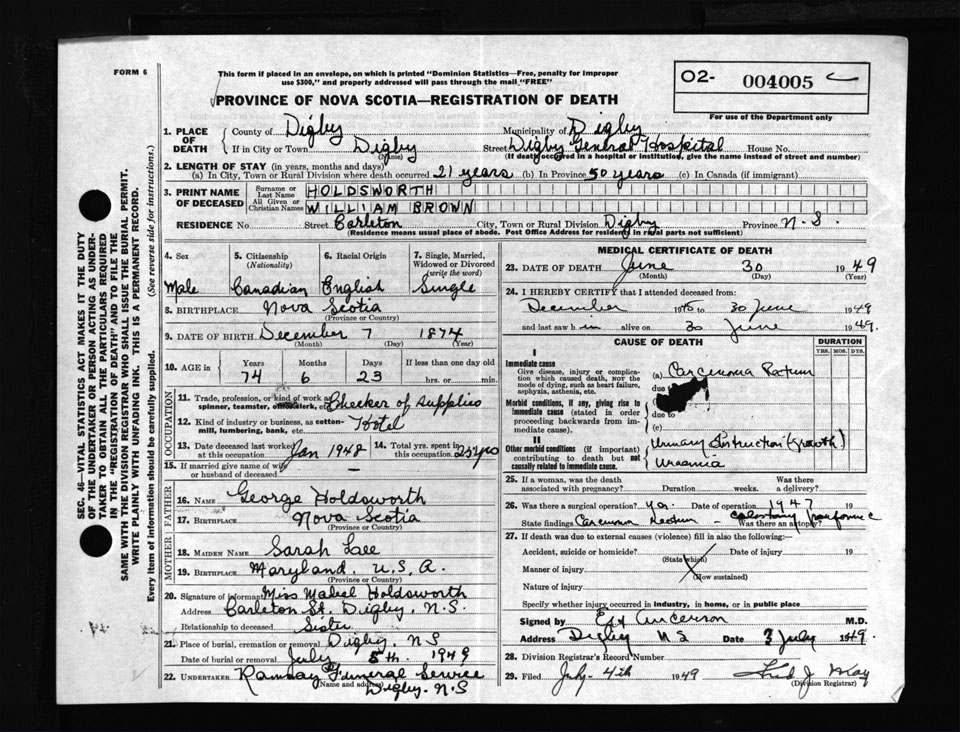 FORM 6
This form if placed in an envelope, on which is printed "Dominion Statistics—Free, penalty for improper
use $300," and properly addressed will pass through the mail "FREE"
O2- 004005
For use of the Department only
PROVINCE OF NOVA SCOTIA—REGISTRATION OF DEATH
1. PLACE OF DEATH
County of Digby Municipality of Digby
If in City or Town Digby Street Digby General Hospital House No.
(Name) (If death occurred in a hospital or institution, give the name instead of street and number)
2. LENGTH OF STAY (in years, months and days)
(a) In City, Town or Rural Division where death occurred 21 years (b) In Province 50 years (c) In Canada (if immigrant)
3. PRINT NAME OF DECEASED
Surname or Last Name HOLDSWORTH
All Given or Christian Names WILLIAM BROWN
RESIDENCE No. Street Carleton City, Town or Rural Division Digby Province N.S.
(Residence means usual place of abode. Post Office Address for residents in rural parts not sufficient)
4. Sex 5. Citizenship (Nationality) 6. Racial Origin 7. Single, Married, Widowed or Divorced (write the word)
Male Canadian English Single
8. BIRTHPLACE Nova Scotia
(Province or Country)
9. DATE OF BIRTH December 7 1874
(Month) (Day) (Year)
10. AGE in Years Months Days If less than one day old
74 6 23 hrs. or min.
OCCUPATION
11. Trade, profession, or kind of work as spinner, teamster, office clerk, etc. Checker of supplies
12. Kind of industry or business, as cotton-mill, lumbering, bank, etc. Hotel
13. Date deceased last worked at this occupation Jan 1948 14. Total yrs. spent in this occupation 25 yrs
15. If married give name of wife or husband of deceased —
FATHER
16. NAME George Holdsworth
17. BIRTHPLACE Nova Scotia
(Province or Country)
MOTHER
18. MAIDEN NAME Sarah Lee
19. BIRTHPLACE Maryland. U.S.A.
(Province or Country)
20. Signature of informant Miss Mabel Holdsworth
Address Carleton St. Digby. N.S.
Relationship to deceased Sister
21. Place of burial, cremation or removal Digby. NS
Date of burial or removal July 5th. 1949
22. UNDERTAKER Ramsay Funeral Service
(Name and address) Digby. N.S
MEDICAL CERTIFICATE OF DEATH
23. DATE OF DEATH June 30 1949
(Month) (Day) (Year)
24. I HEREBY CERTIFY that I attended deceased from:
December to 30 June 1949
and last saw h im alive on 30 June 1949.
CAUSE OF DEATH DURATION
YRS. MOS. DYS.
I
Immediate cause
Give disease, injury or complication which caused death, NOT the mode of dying, such as heart failure, asphyxia, asthenia, etc.
(a) Carcinoma Rectum
due to
Morbid conditions, if any, giving rise to immediate cause (stated in order proceeding backwards from immediate cause).
due to
(c)
II
Other morbid conditions (if important) contributing to death but not causally related to immediate cause.
Urinary obstruction (growth)
Uraemia
25. If a woman, was the death associated with pregnancy? Duration weeks. Was there a delivery?
26. Was there a surgical operation? Date of operation 1947
State findings Carcinoma Rectum — Was there an autopsy?
27. If death was due to external causes (violence) fill in also the following:—
Accident, suicide or homicide? Date of injury 19
(State which)
Manner of injury
(How sustained)
Nature of injury
Specify whether injury occurred in industry, in home, or in public place
Signed by M.D.
Address Digby NS Date 3 July 1949.
28. Division Registrar's Record Number
29. Filed July 4th 1949
(Division Registrar)
SEC. 46—VITAL STATISTICS ACT MAKES IT THE DUTY
OF THE UNDERTAKER OR PERSON ACTING AS UNDERTAKER TO OBTAIN ALL THE PARTICULARS REQUIRED
IN THE "REGISTRATION OF DEATH" AND TO FILE THE
SAME WITH THE DIVISION REGISTRAR WHO SHALL ISSUE THE BURIAL PERMIT.
WRITE PLAINLY WITH UNFADING INK. THIS IS A PERMANENT RECORD.
Every item of information should be carefully supplied. (See reverse side for instructions.)